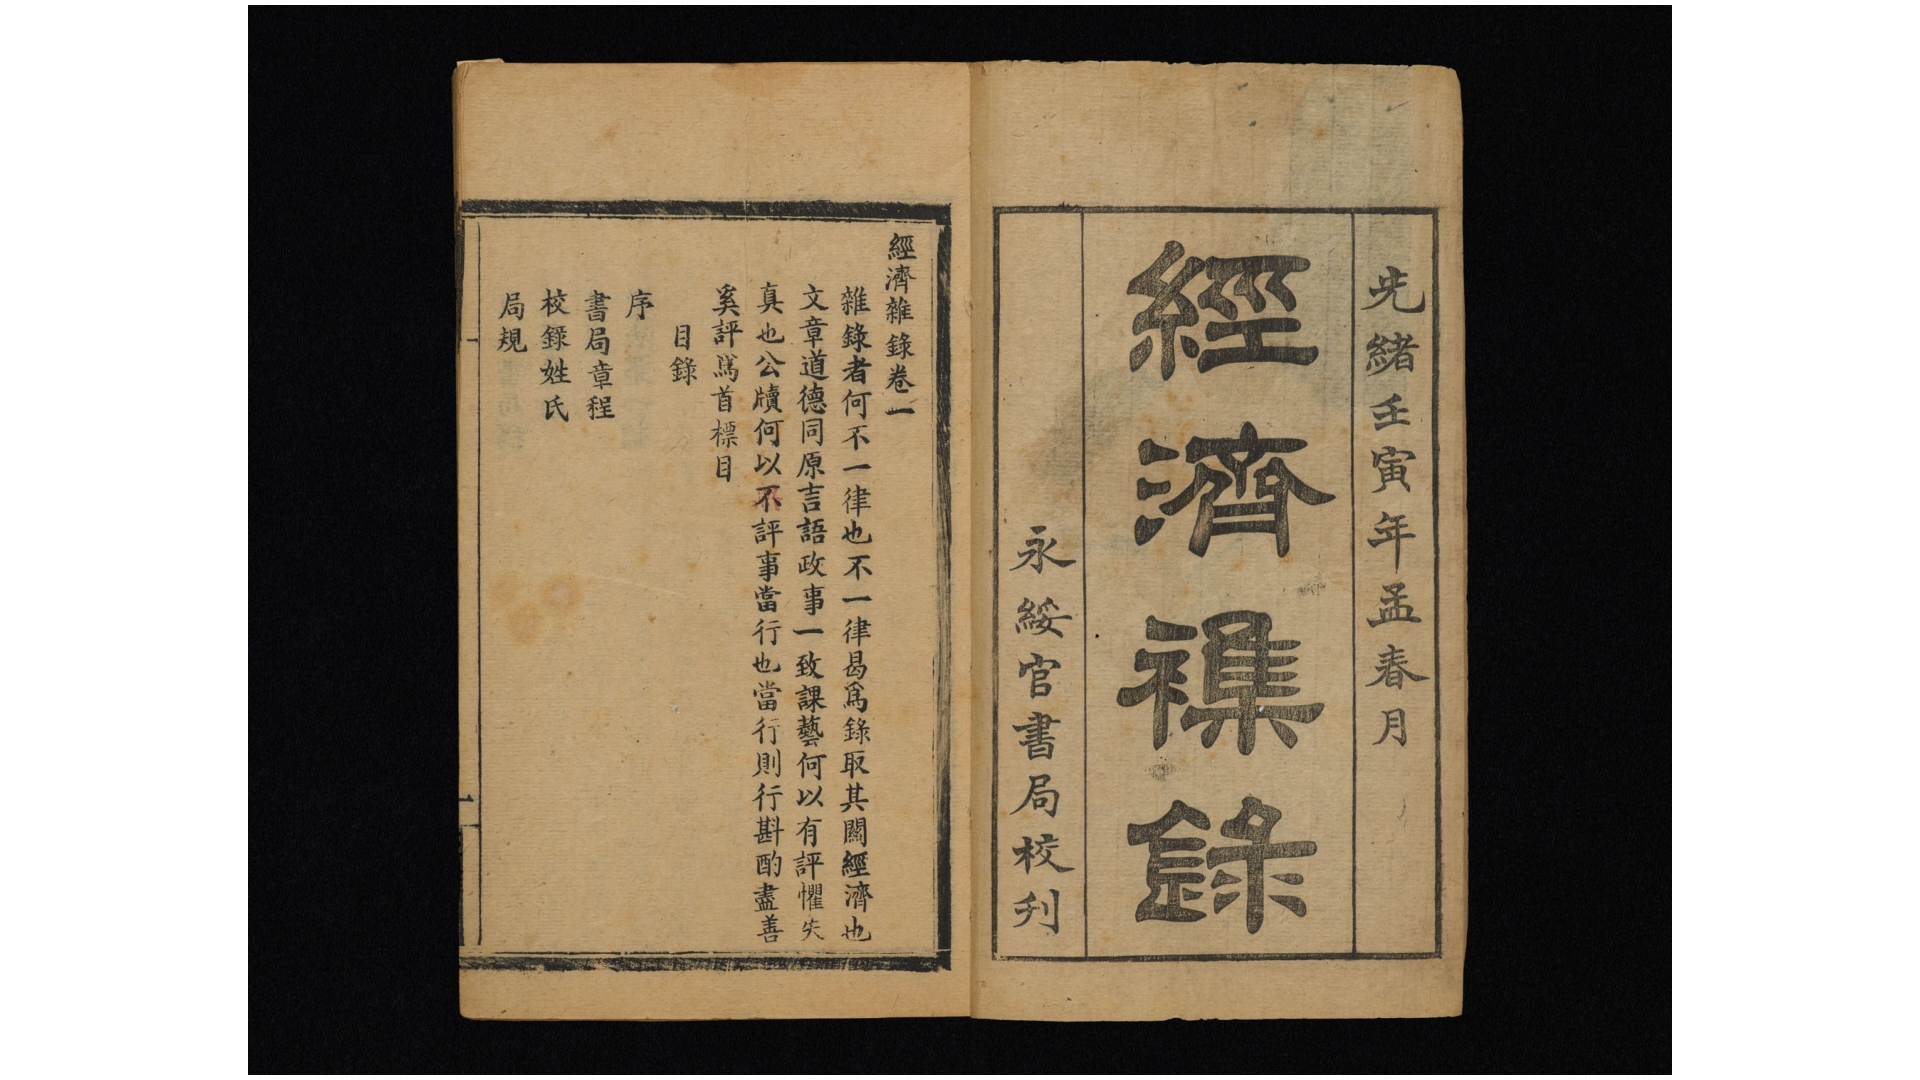 光緒壬寅年孟春月
經濟襍錄
永綏官書局校刋
經濟雜錄卷一
雜錄者何不一律也不一律曷爲錄取其關經濟也
文章道德同原言語政事一致課藝何以有評懼失
真也公牘何以不評事當行也當行則行斟酌盡善
奚評爲首標目
目錄
序
書局章程
校錄姓氏
局規
一